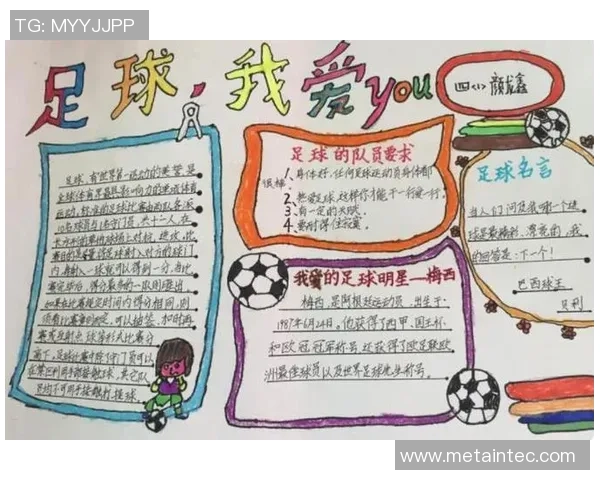 TG: MYYJJPP
足球，我爱you
四(1) 颜龙鑫
足球，有"世界第一运动"的美誉，是
全球体育界最具影响力的单项体育
运动，标准的足球比赛由两队各派
10名球员与1名守门员，共十一人，在
长方形的草地球场上对抗，进攻，比
赛目的是尽量将足球射入对方的球门
内，每射入一球就可以得到一分，当比
赛完毕后，得分最多的一队则胜出，
如果在比赛规定时间内得分相同，则
须看比赛章则而定，可以抽签、加时再
赛或互射点球等形式比赛分
高下，足球比赛中除了守门员可以
在禁区利用手部接触足球，其它队
员均不可用手接触打球。
足球的队员要求
1、身体好，任何足球运动员身体都
很棒。
2、热爱足球，这样你才能干一行爱一行。
3、有一定的天赋
4、要耐得住寂寞。
我爱的足球明星—梅西
梅西，是阿根廷运动员，出生于
1987年6月24日。他获得了西甲、国王杯
和欧冠冠军称号，还获得了欧足联欧
洲最佳球员以及世界足球先生称号。
足球名言
当人们问及我哪一个进
球是最精彩、漂亮的，我
的回答是：下一个！
巴西球王
贝利
www.metaintec.com